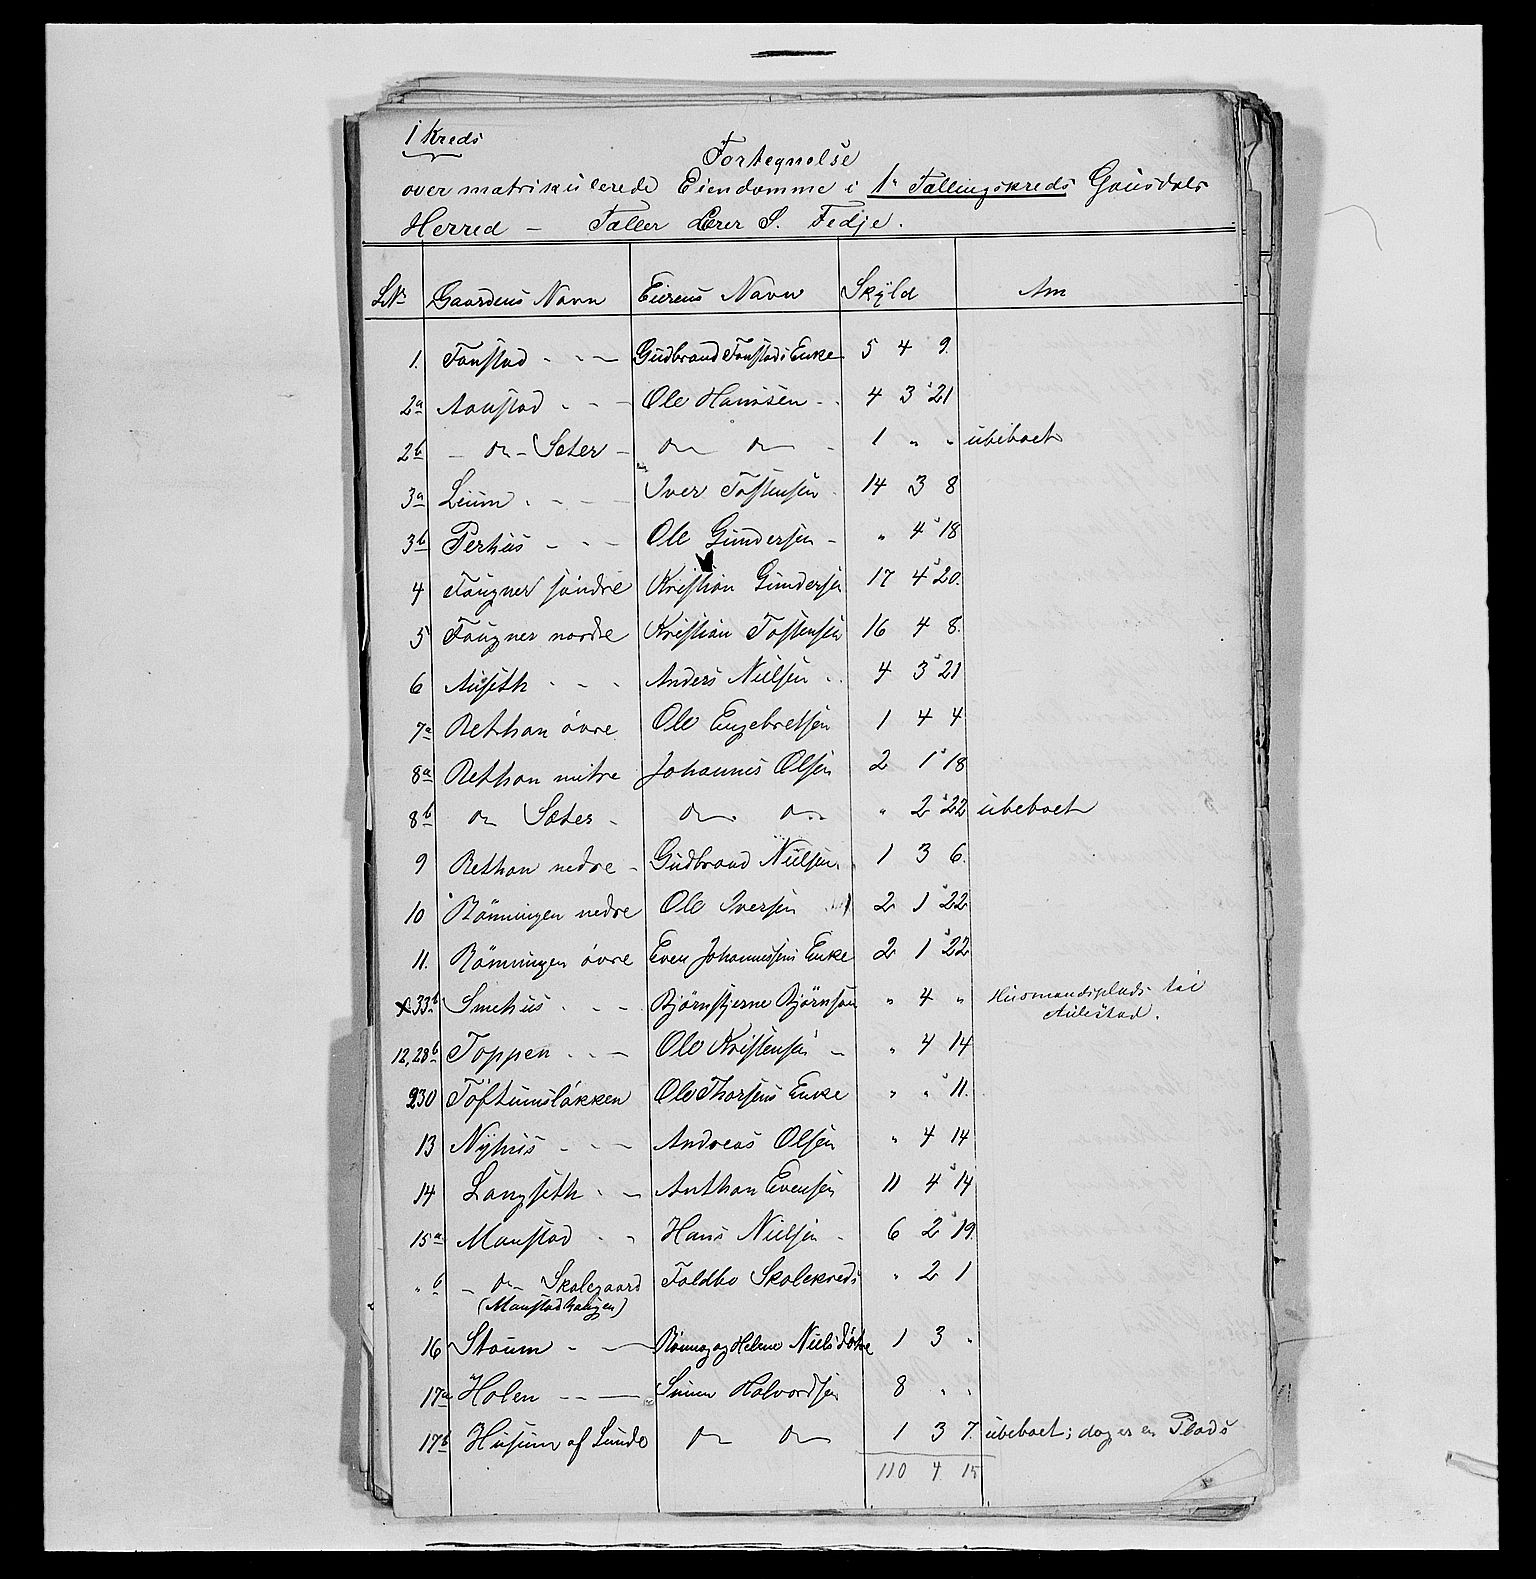 1 Kreds
Fortegnelse
over matrikulerede Eiendomme i 1ste Tællingskreds Gausdals
Herred — Tæller Lærer S. Fedje.
LNr Gaardens Navn Eierens Navn Skyld Anm
1. Fonstad - - - Gudbrand Fonstads Enke 5 4 9.
2a Aanstad - - - Ole Hansen - - 4 3 21
2b - do - Sæter - do do - 1 " " ubeboet
3a Leium - - - - Iver Tostensen - 14 3 8
3b Perhus - - - Ole Gundersen - " 4 18
4 Faugner søndre Kristian Gundersen 17 4 20.
5 Faugner nordre Kristian Tostensen 16 4 8.
6 Auseth - - - Anders Nielsen - - 4 3 21
7a Rethan övre Ole Engebretsen 1 4 4
8a Rethan mitre Johannes Olsen 2 1 18
8b do Sæter - do do " 2 22 ubeboet
9 Rethan nedre - Gudbrand Nielsen. 1 3 6.
10 Rönningen nedre Ole Iversen 2 1 22
11. Rönningen övre Even Johannesens Enke 2 1 22
x 33b Smehus - - - Bjørnstjerne Bjørnson " 4 " Husmandsplads til
Aulestad.
12,28b Toppen - - - Ole Kristensen - " 4 14
230 Toftumsløkken Ole Thorsens Enke " " 11.
13 Nyhus - - - Andreas Olsen " 4 14
14 Langseth - - Anthon Evensen 11 4 14
15a Manstad - - Hans Nielsen - 6 2 19
" b - do - Skolegaard Foldbo Skolekreds " 2 1
(Manstadhaugen)
16 Stoum - - Rönnog og Helene Nielsdötre 1 3 "
17a Holen - - - Simen Halvordsen 8 " "
17b Husum af Lunde do do 1 3 7. ubeboet; dog er en Plads
110 4 15